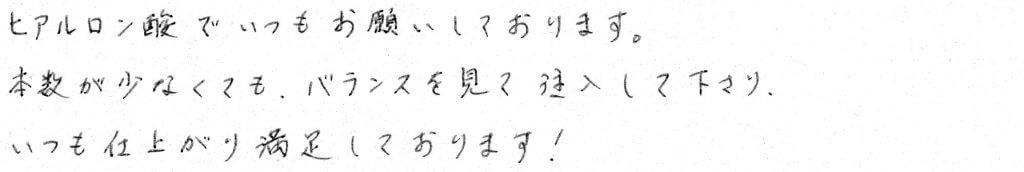 ヒアルロン酸でいつもお願いしております。
本数が少なくても、バランスを見て注入して下さり、
いつも仕上がり満足しております！